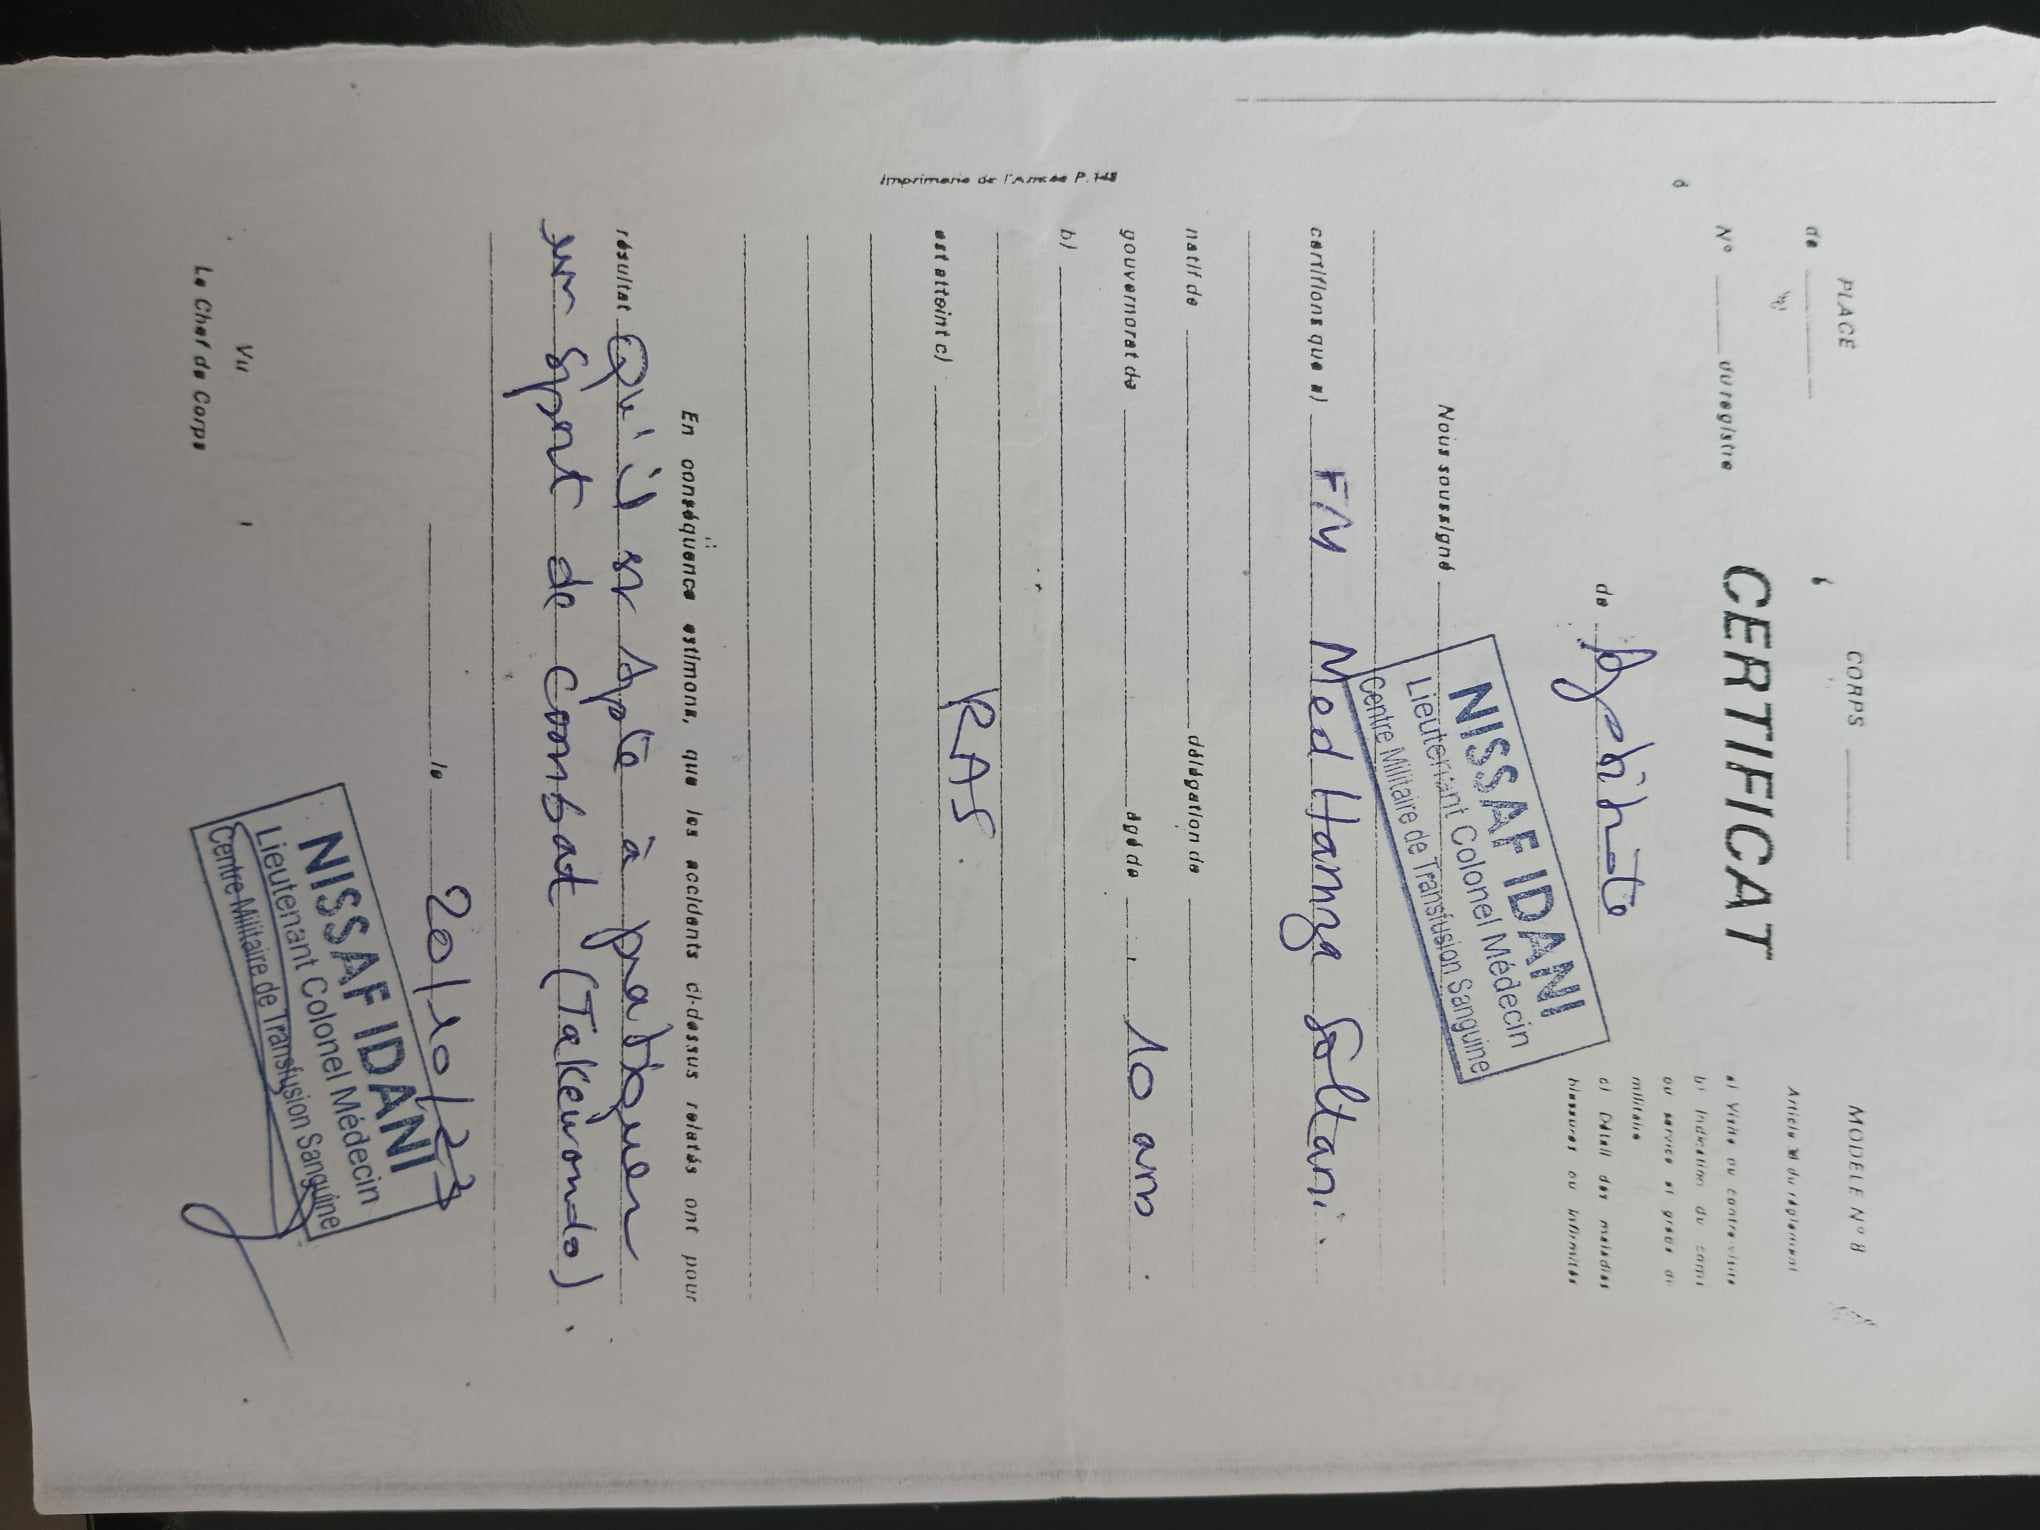 PLACE
CORPS
MODELE N° 8
de
Article du règlement
N° du registre
CERTIFICAT
a) Visite ou contre visite
b) Indication du corps
ou service et grade du
militaire
c) Détail des maladies
blessures ou infirmités
de Aptitude
Nous soussigné
NISSAF IDANI
Lieutenant Colonel Médecin
Centre Militaire de Transfusion Sanguine
certifions que a) FM Med Hamza Soltani.
natif de délégation de
gouvernorat de agé de 10 ans
b)
est atteint c) RAS.
En conséquence estimons, que les accidents ci-dessus relatés ont pour
résultat Qu'il est Apte à pratiquer
un Sport de combat (Takewondo).
le 20/10/23
NISSAF IDANI
Lieutenant Colonel Médecin
Centre Militaire de Transfusion Sanguine
Vu
Le Chef de Corps
Imprimerie de l'Armée P. 148